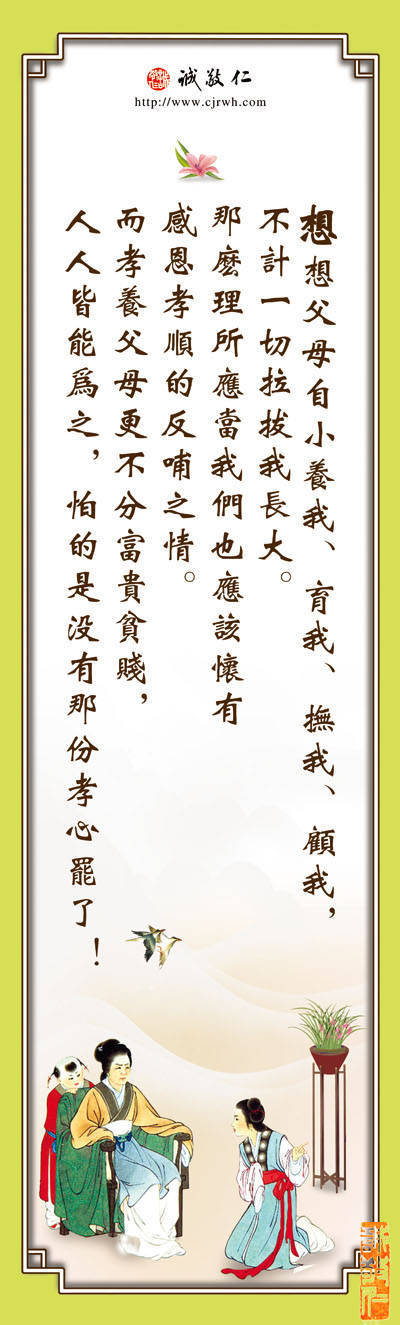 誠敬仁
http://www.cjrwh.com
想想父母自小養我、育我、撫我、顧我，
不計一切拉拔我長大。
那麼理所應當我們也應該懷有
感恩孝順的反哺之情。
而孝養父母更不分富貴貧賤，
人人皆能爲之，怕的是没有那份孝心罷了！